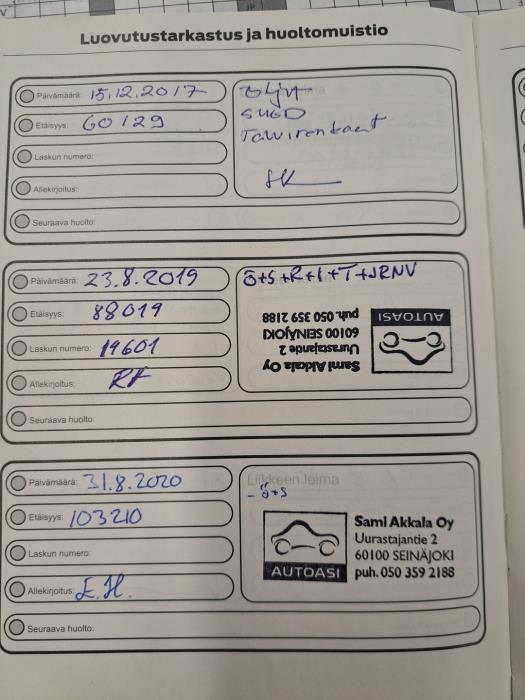 Luovutustarkastus ja huoltomuistio
Päivämäärä: 15.12.2017
Etäisyys: 60129
Laskun numero:
Allekirjoitus:
Seuraava huolto:
öljyt
suod
Päivämäärä: 23.8.2019
Etäisyys: 88019
Laskun numero: 19601
Allekirjoitus:
Seuraava huolto:
Ö+S+R+I+T+JRNV
Sami Akkala Oy
Uurastajantie 2
60100 SEINÄJOKI
puh. 050 359 2188
AUTOASI
Päivämäärä: 31.8.2020
Etäisyys: 103210
Laskun numero:
Allekirjoitus: E.H.
Seuraava huolto:
Liikkeen leima
- ö+s
Sami Akkala Oy
Uurastajantie 2
60100 SEINÄJOKI
puh. 050 359 2188
AUTOASI